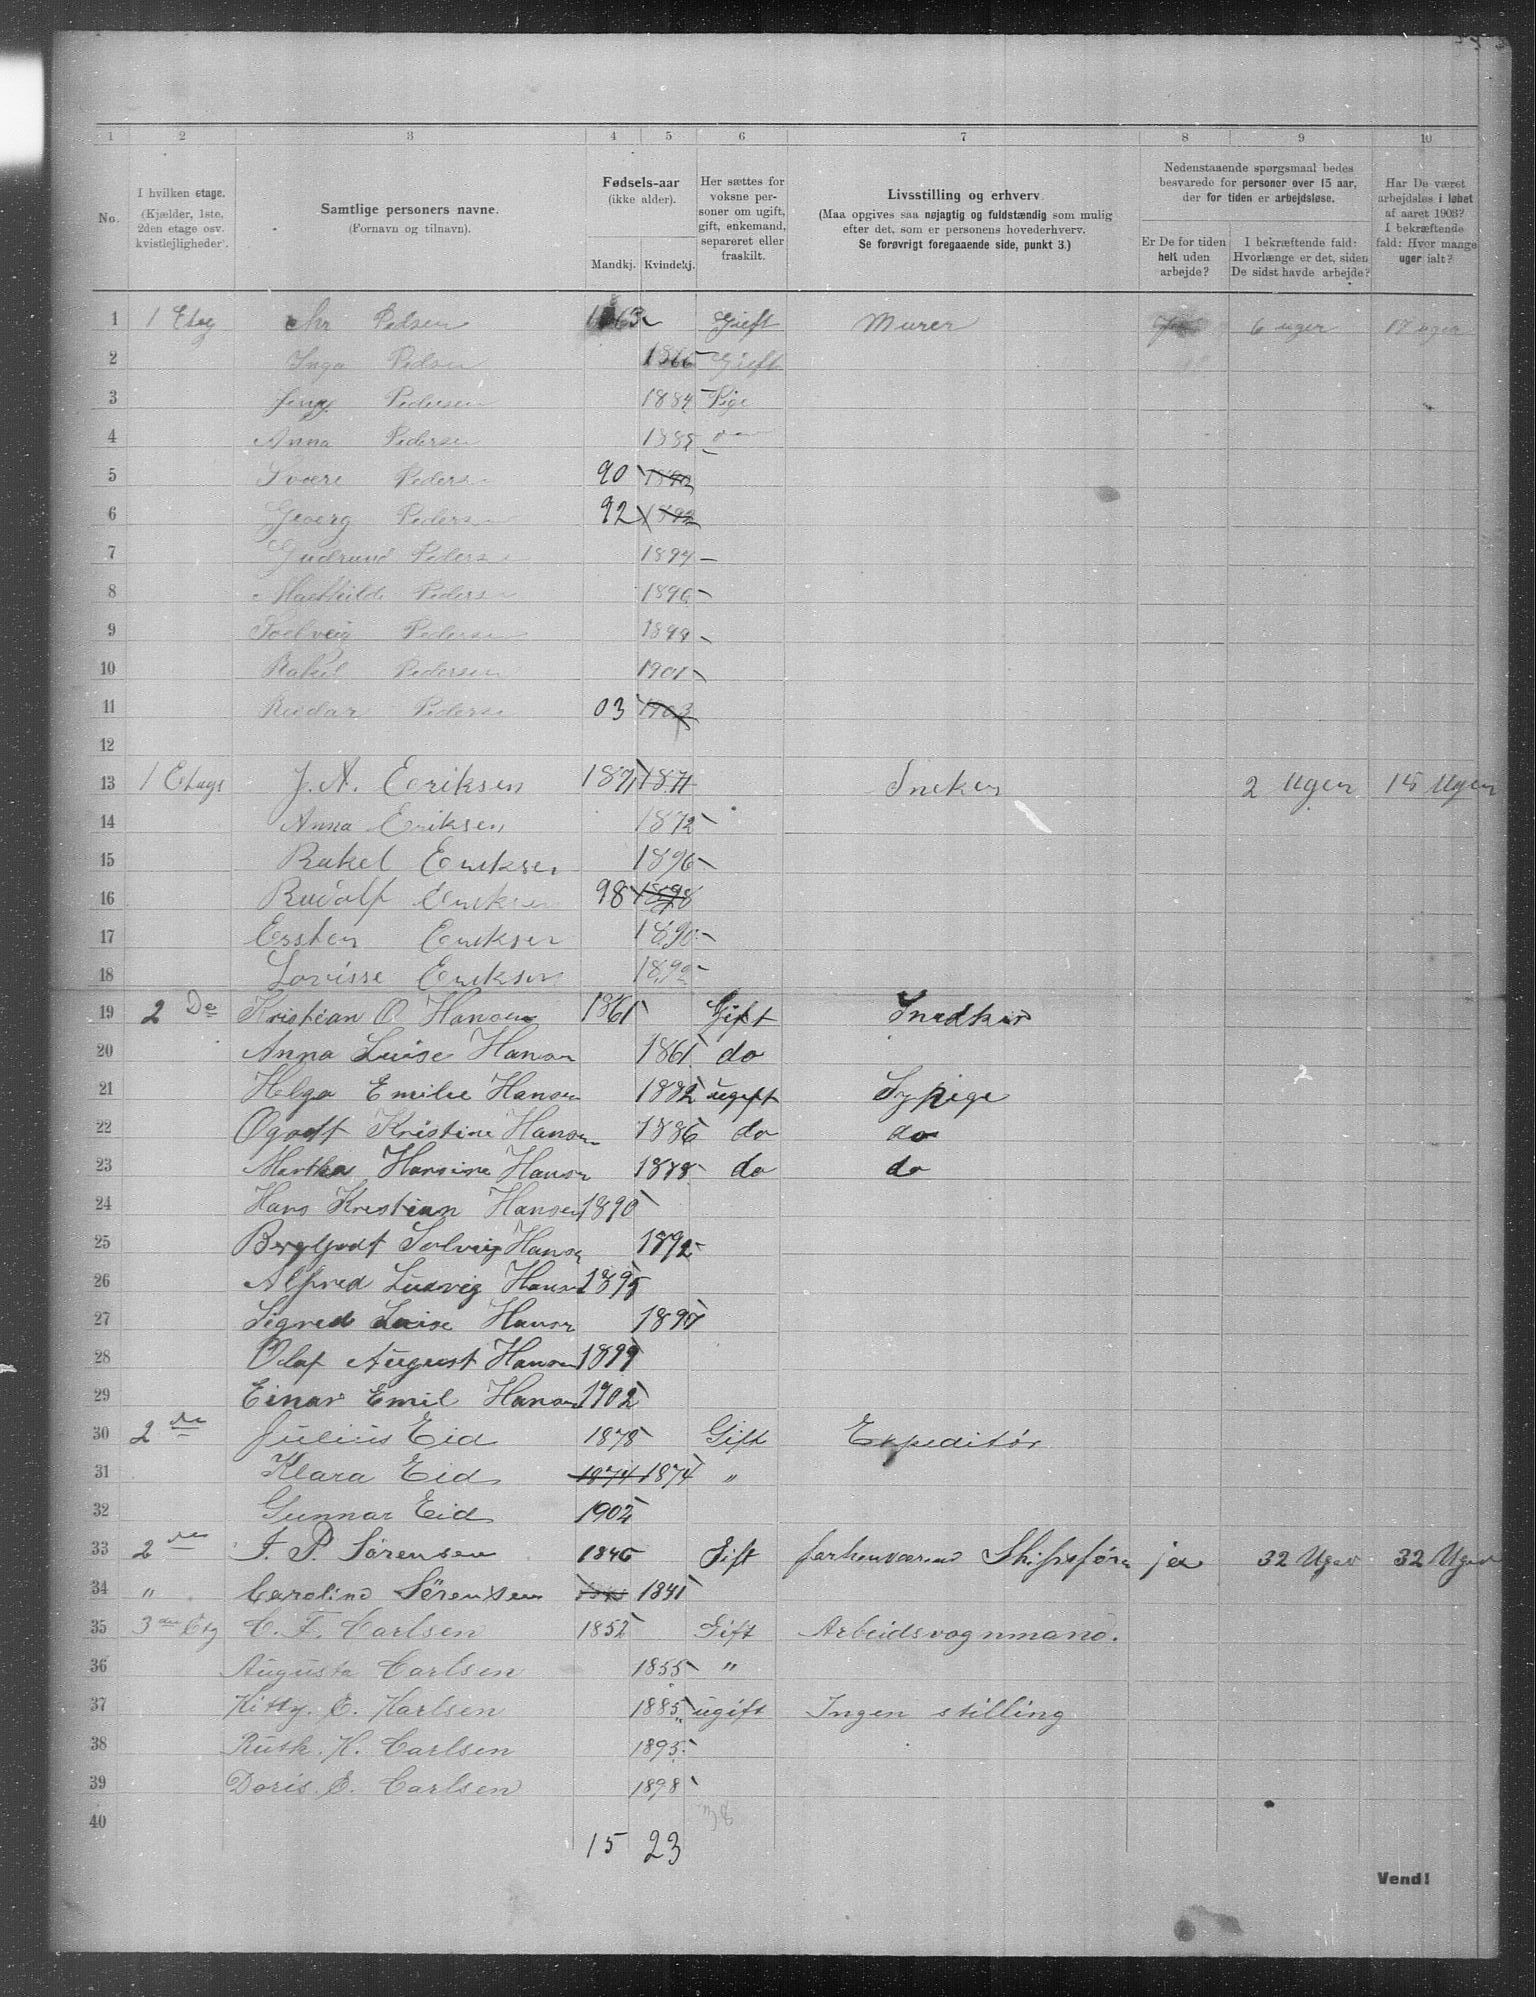 1 2 3 4 5 6 7 8 9 10
No.
I hvilken etage.
(Kjælder, 1ste, 2den etage osv. kvistlejligheder).
Samtlige personers navne.
(Fornavn og tilnavn).
Fødsels-aar
(ikke alder).
Mandkj. Kvindekj.
Her sættes for voksne personer om ugift, gift, enkemand, separeret eller fraskilt.
Livsstilling og erhverv
(Maa opgives saa nøjagtig og fuldstændig som mulig efter det, som er personens hovederhverv.
Se forøvrigt foregaaende side, punkt 3.)
Nedenstaaende spørgsmaal bedes besvarede for personer over 15 aar, der for tiden er arbejdsløse.
Er De for tiden helt uden arbejde?
I bekræftende fald: Hvorlænge er det, siden De sidst havde arbejde?
Har De været arbejdsløs i løbet af aaret 1903? I bekræftende fald: Hvor mange uger ialt?
1 1 Etag Chr Pedsen 1863 Gieft Murer 6 uger uger
2 Inga Pedsen 1866 Gieft
3 Jeny Pedersen 1884 Pige
4 Anna Pedersen 1885
5 Svære Peders 90 1890
6 Georg Peders 92 1892
7 Gudrund Peders 1894
8 Maethilde Peders 1896
9 Soelveig Pedersen 1899
10 Rakel Pedersen 1901
11 Reidar Peders 03 1903
12
13 1 Etags J. A. Eeriksen 1871 1871 Sneker 2 Uger 15 Uger
14 Anna Eriksen 1872
15 Rakel Eriksen 1896
16 Rudolf Eriksen 98 1898
17 Ersten Eriksen 1890
18 Lovisse Eriksen 1892
19 2 De Kristian O Hansen 1861 Gift Snedker
20 Anna Luise Hansen 1861 do
21 Helga Emilie Hansen 1882 ugift Sypige
22 Ogodt Kristine Hansen 1886 do do
23 Martha Hansine Hansen 1888 do do
24 Hans Kristian Hansen 1890
25 Bergljodt Solveig Hansen 1892
26 Alfred Ludvig Hansen 1895
27 Sigred Luise Hansen 1897
28 Olaf August Hansen 1899
29 Einar Emil Hansen 1902
30 2 de Julius Eid 1878 Gift Expeditør
31 Klara Eid 1874 1874 "
32 Gunnar Eid 1902
33 2 de J. P. Sørensen 1846 Gift forhenværend Skibsfører ja 32 Uger 32 Uger
34 " Carolind Sørensen 1841
35 3 die Etg C. F. Carlsen 1852 Gift Arbeidsvognmand.
36 Augusta Carlsen 1855 "
37 Kitty. E. Karlsen 1885 ugift Ingen stilling
38 Ruth. K. Carlsen 1895
39 Doris. E. Carlsen 1898
40
38
15 23
Vend!